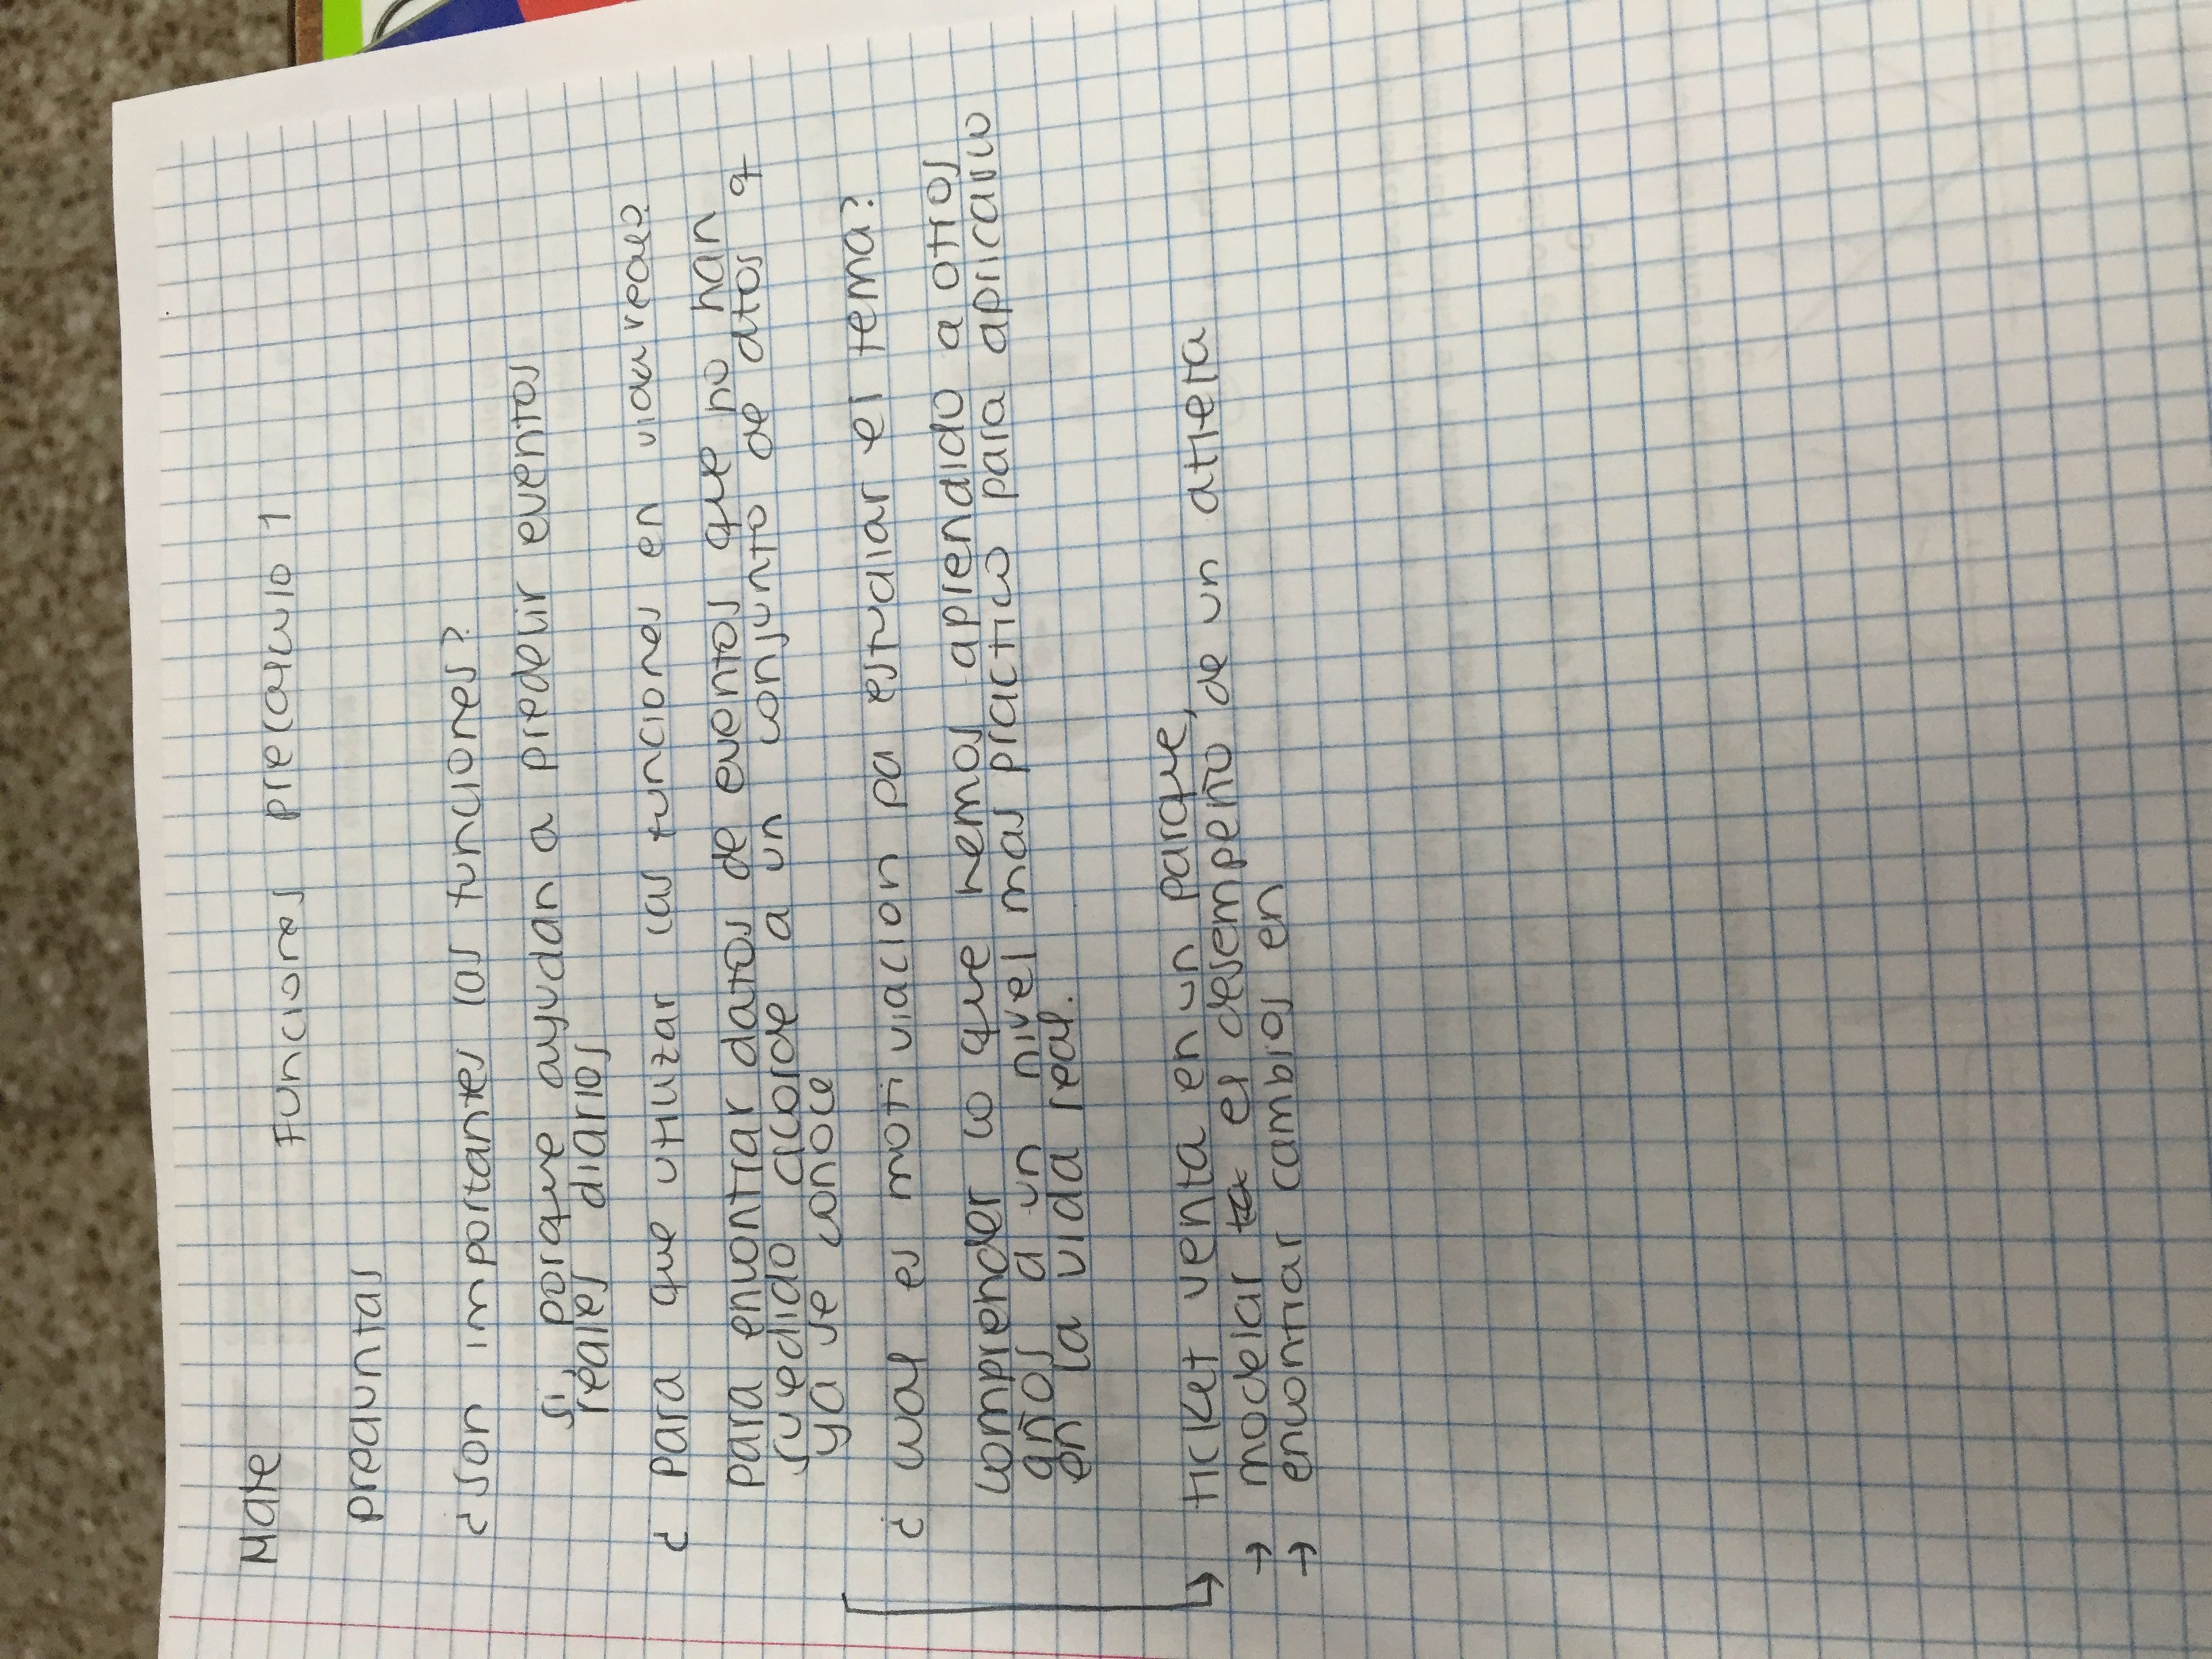 Mate
Funciones precalculo 1
preguntas
¿son importantes las funciones?
si porque ayudan a predecir eventos
reales diarios
¿ Para que utilizar las funciones en vida real?
para encontrar datos de eventos que no han
sucedido acorde a un conjunto de datos q
ya se conoce
¿ cual es motiviacion pa estudiar el tema?
comprender lo que hemos aprendido a otros
años a un nivel mas practico para aplicarlo
en la vida real.
ticket venta en un parque,
→ modelar el desempeño de un atleta
→ encontrar cambios en